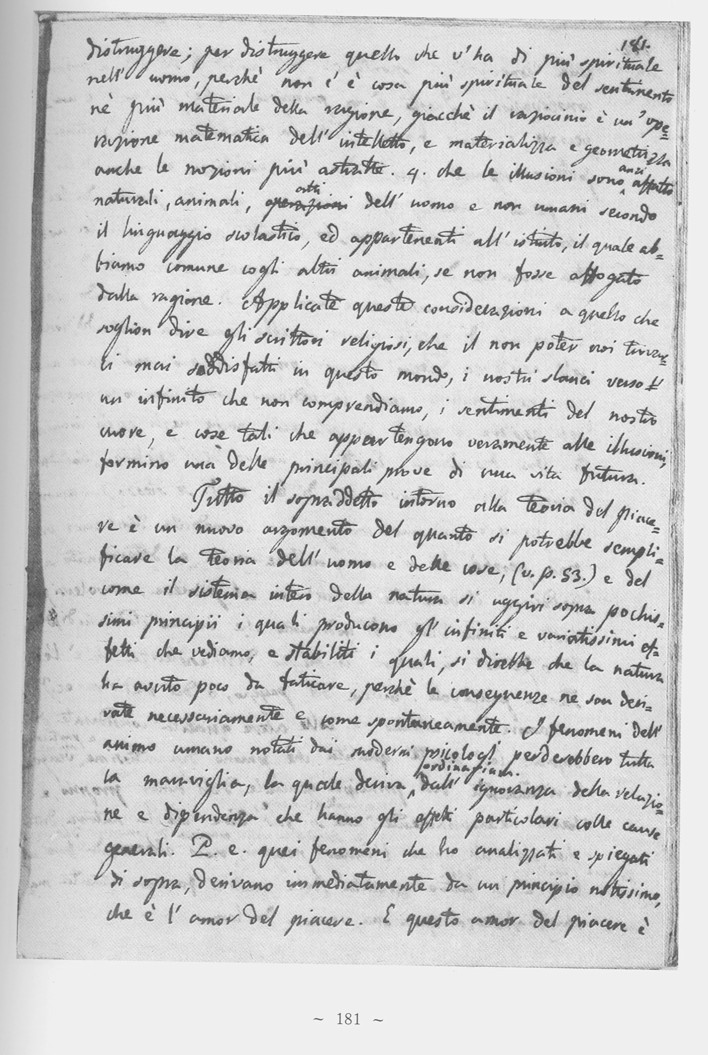 181.
distruggere; per distruggere quello che v'ha di più spirituale
nell' uomo, perchè non c'è cosa più spirituale del sentimento
nè più materiale della ragione, giacchè il raziocinio è un' ope-
razione matematica dell' intelletto, e materializza e geometrizza
anche le nozioni più astratte. 4. che le illusioni sono anzi affatto
naturali, animali, operazioni atti dell' uomo e non umani secondo
il linguaggio scolastico, ed appartenenti all' istinto, il quale ab-
biamo comune cogli altri animali, se non fosse affogato
dalla ragione. Applicate queste considerazioni a quello che
soglion dire gli scrittori religiosi, che il non poter noi trovar-
ci mai soddisfatti in questo mondo, i nostri slanci verso
un infinito che non comprendiamo, i sentimenti del nostro
cuore, e cose tali che appartengono veramente alle illusioni,
formino una delle principali prove di una vita futura.
Tutto il sopraddetto intorno alla teoria del piace-
re è un nuovo argomento del quanto si potrebbe sempli-
ficare la teoria dell' uomo e delle cose, (v. p. 53.) e del
come il sistema intero della natura si aggiri sopra pochis-
simi principii i quali producono gl' infiniti e variatissimi ef-
fetti che vediamo, e stabiliti i quali, si direbbe che la natura
ha avuto poco da faticare, perchè le conseguenze ne son deri-
vate necessariamente e come spontaneamente. I fenomeni dell'
animo umano notati dai moderni psicologi perderebbero tutta
la maraviglia, la quale deriva ordinariam. dall' ignoranza della relazio-
ne e dipendenza che hanno gli effetti particolari colle cause
generali. P. e. quei fenomeni che ho analizzati e spiegati
di sopra, derivano immediatamente da un principio notissimo,
che è l' amor del piacere. E questo amor del piacere è
~ 181 ~